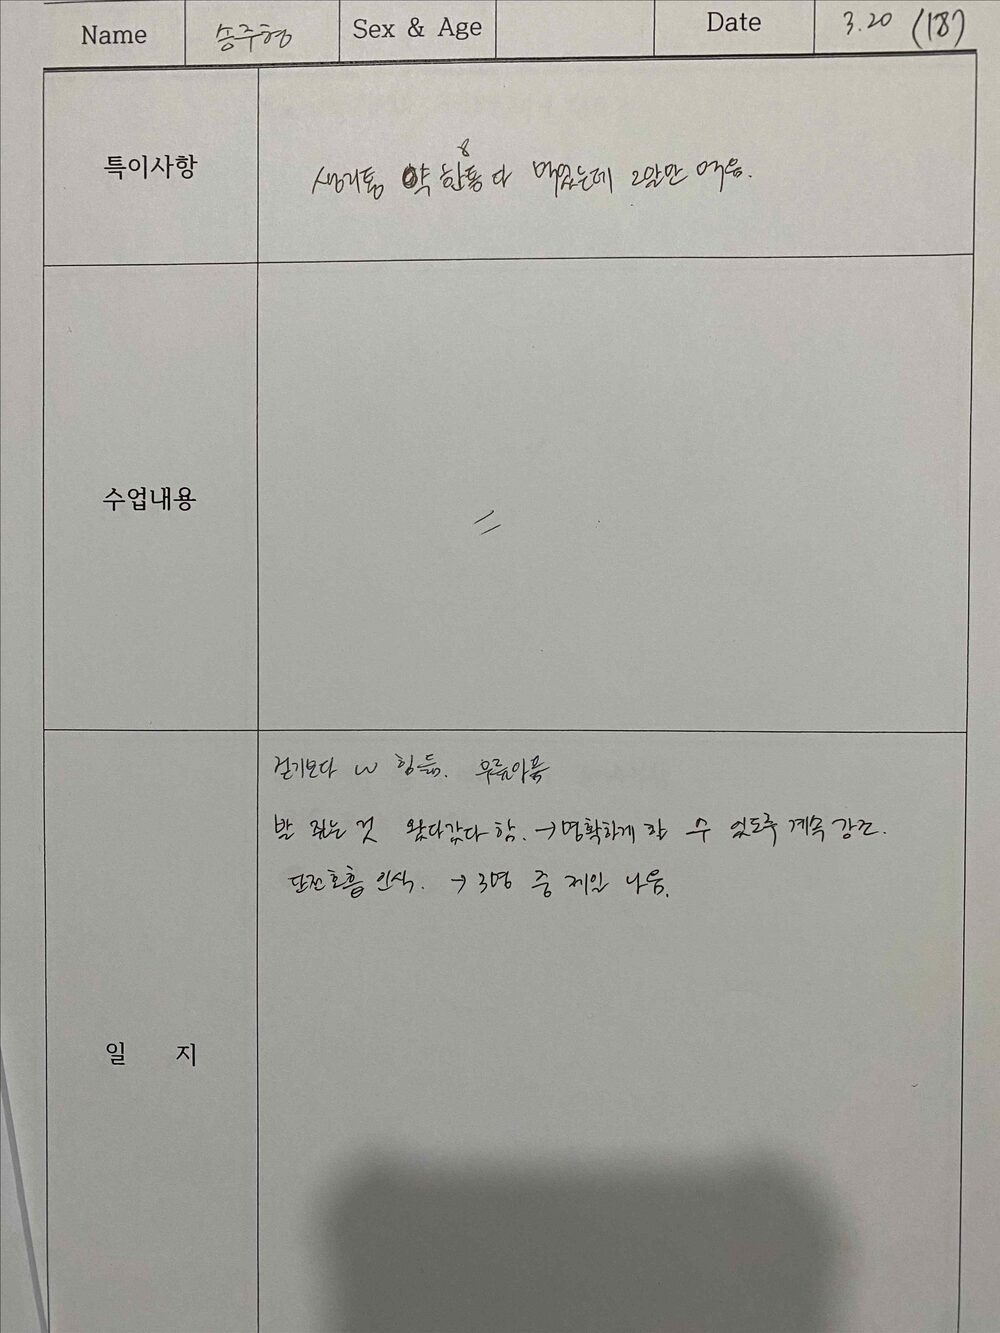 Name 송주형 Sex & Age Date 3.20 (18)
특이사항
8
생리통 약 한통 다 먹었는데 2알만 먹음.
수업내용
〃
걷기보다 w 힘듦. 무릎아픔
발 쥐는 것 왔다갔다 함. → 명확하게 할 수 있도록 계속 강조.
단전호흡 인식. → 3명 중 제일 나음.
일 지